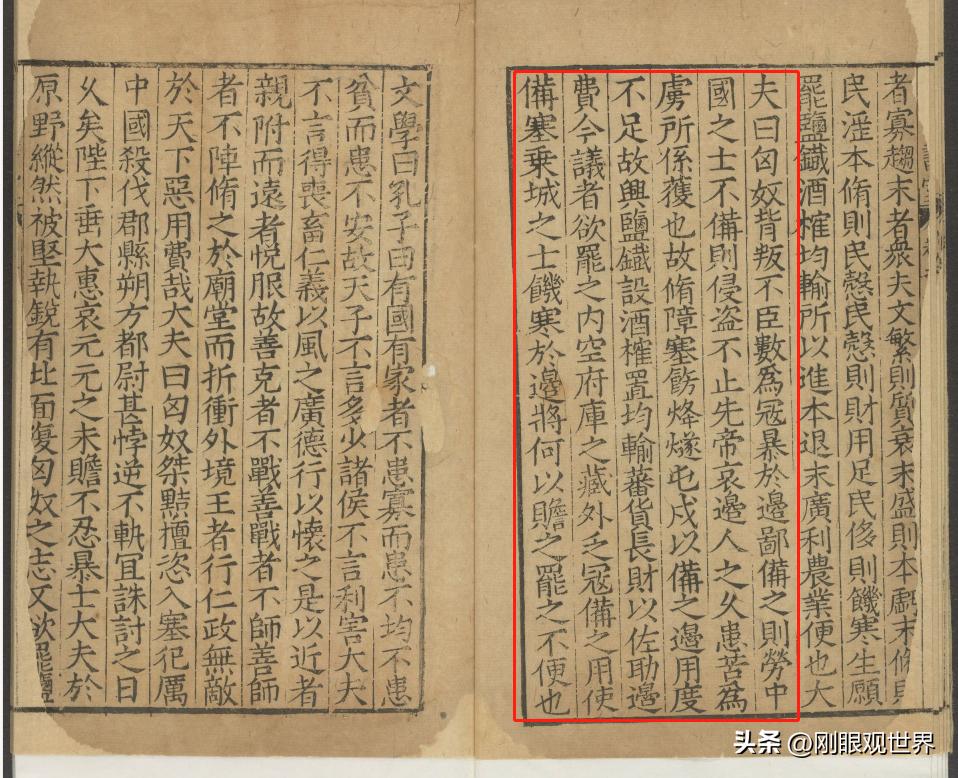 者寡趨末者衆夫文繁則質衰末盛則本虧末脩則
民淫本脩則民慤民慤則財用足民侈則饑寒生願
罷鹽鐵酒榷均輸所以進本退末廣利農業便也大
夫曰匈奴背叛不臣數爲冦暴於邊鄙備之則勞中
國之士不備則侵盗不止先帝哀邊人之久患苦爲
虜所係獲也故脩障塞飭烽燧屯戍以備之邊用度
不足故興鹽鐵設酒榷置均輸蕃貨長財以佐助邊
費今議者欲罷之内空府庫之藏外乏冦備之用使
備塞乗城之士饑寒於邊將何以贍之罷之不便也
文學曰孔子曰有國有家者不患寡而患不均不患
貧而患不安故天子不言多少諸侯不言利害大夫
不言得喪畜仁義以風之廣德行以懷之是以近者
親附而遠者悦服故善克者不戰善戰者不師善師
者不陣脩之於廟堂而折衝外境王者行仁政無敵
於天下惡用費哉大夫曰匈奴桀黠擅恣入塞犯厲
中國殺伐郡縣朔方都尉甚悖逆不軌冝誅討之日
乆矣陛下垂大惠哀元元之未贍不忍暴士大夫於
原野縱然被堅執鋭有北面復匈奴之志又欲罷鹽
头条 @刚眼观世界